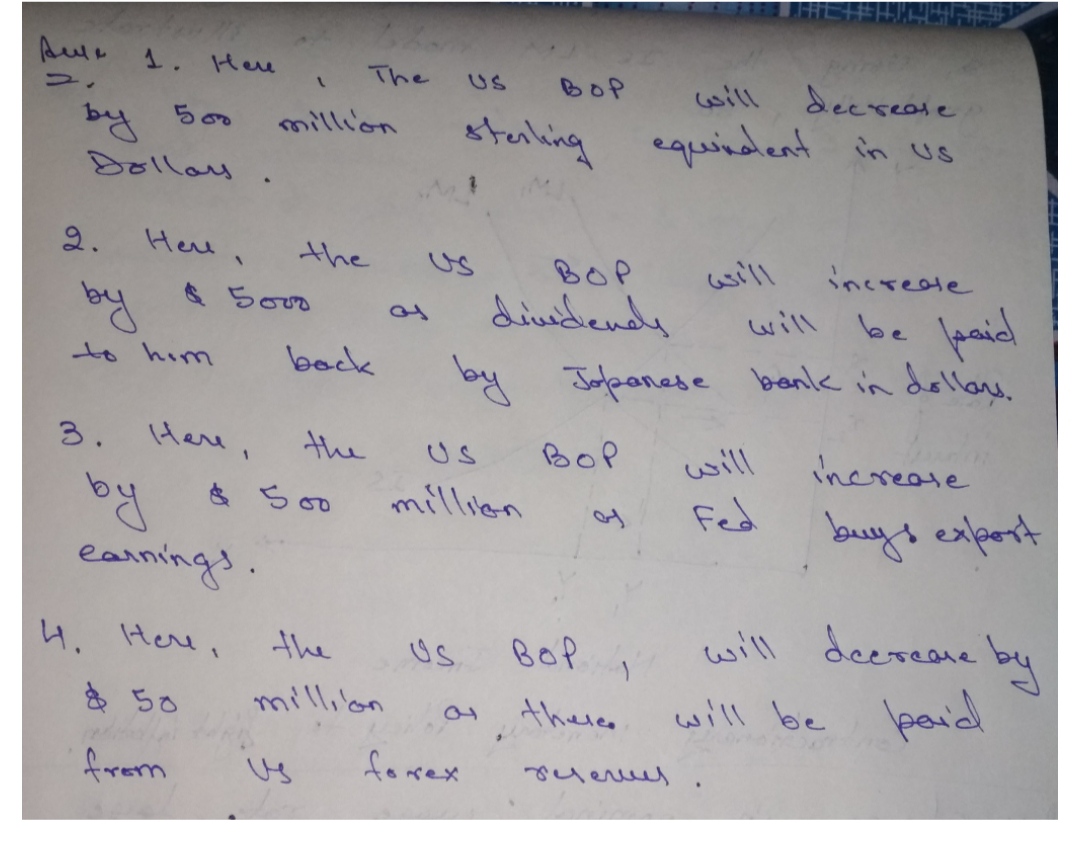 Ans 1. Here, The US BOP will decrease
by 500 million sterling equivalent in US
Dollars.
2. Here, the US BOP will increase
by $ 5000 as dividends will be paid
to him back by Japanese bank in dollars.
3. Here, the US BOP will increase
by $ 500 million as Fed buys export
earnings.
4. Here, the US BOP, will decrease by
$ 50 million as these will be paid
from US forex reserves.